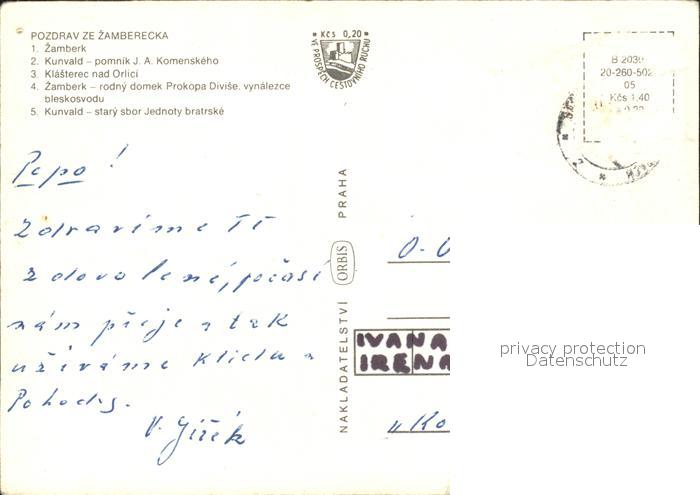 POZDRAV ZE ŽAMBERECKA
1. Žamberk
2. Kunvald – pomník J. A. Komenského
3. Klášterec nad Orlicí
4. Žamberk – rodný domek Prokopa Diviše, vynálezce
bleskosvodu
5. Kunvald – starý sbor Jednoty bratrské
Kčs 0,20
VE PROSPĚCH CESTOVNÍHO RUCHU
B 2030
20-260-502
05
Kčs 1,40
Pepo!
Zdravíme Tě
z dovolené, počasí
nám přeje a tak
užíváme klidu a
Pohody.
V. Jiřík
NAKLADATELSTVÍ ORBIS PRAHA
IVANA
IRENA
"Ko
privacy protection
Datenschutz